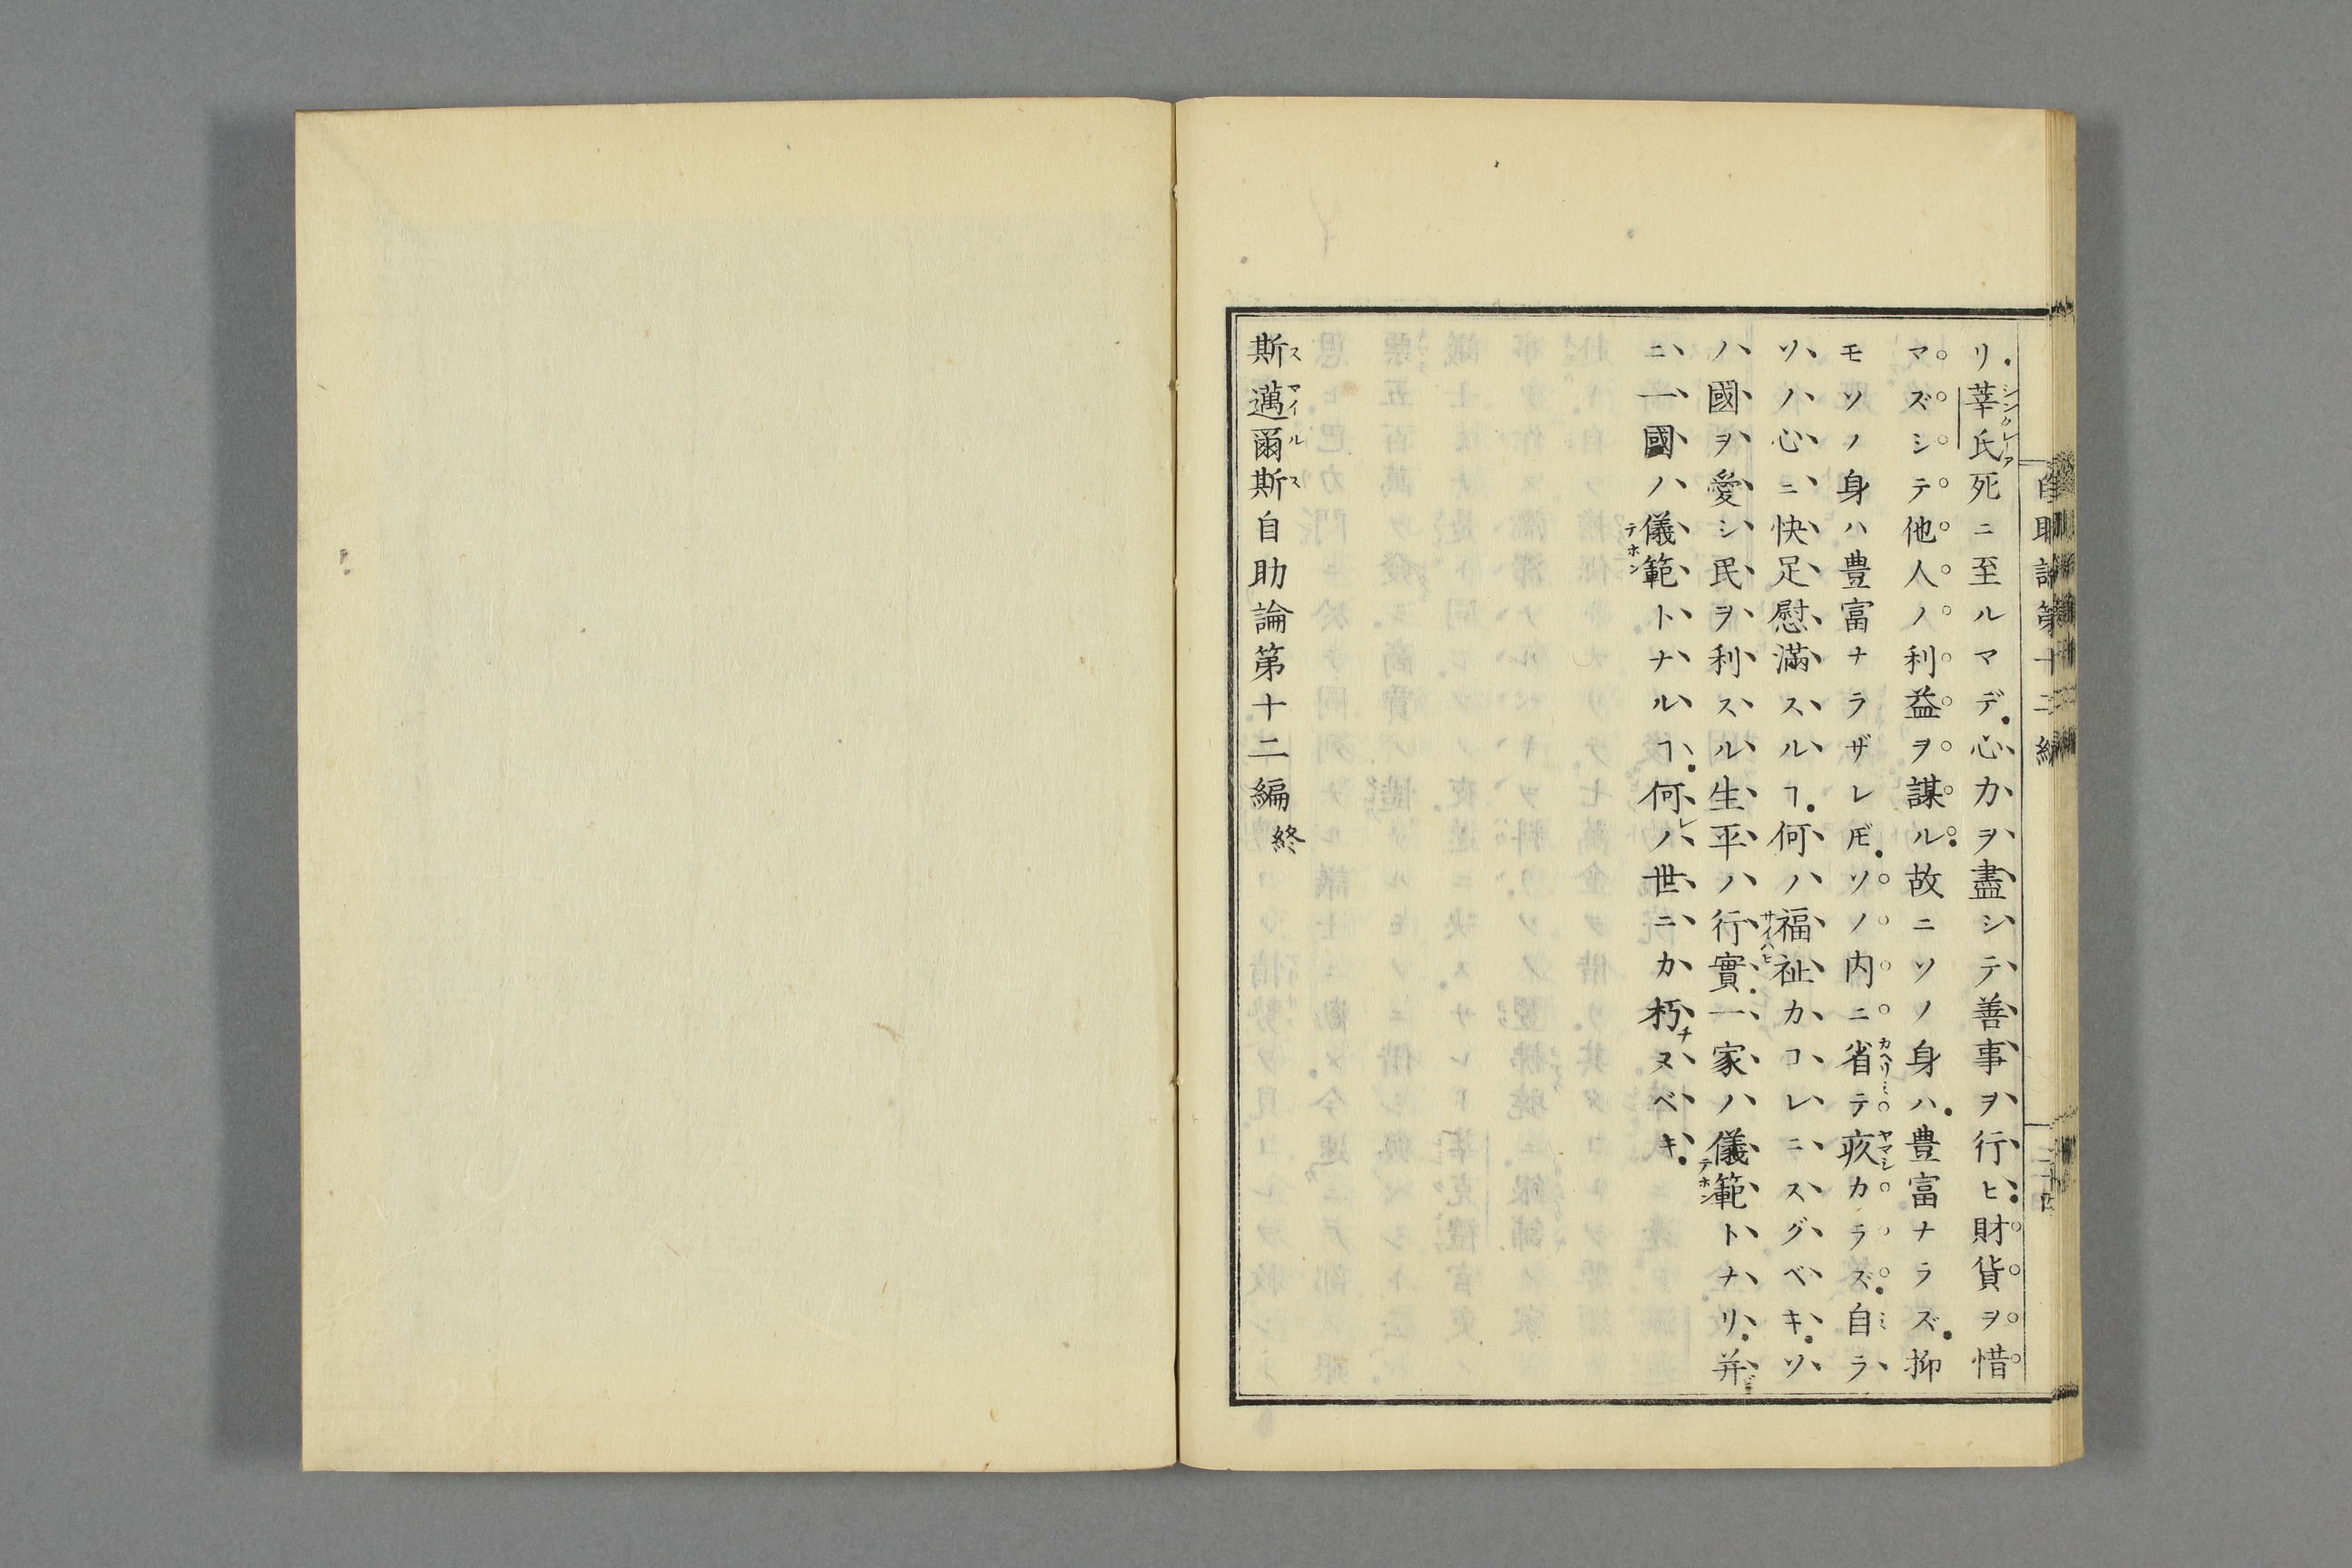 リ莘氏死ニ至ルマデ心力ヲ盡シテ善事ヲ行ヒ財貨ヲ惜
マズシテ他人ノ利益ヲ謀ル故ニソノ身ハ豊富ナラズ抑
モソノ身ハ豊富ナラザレ𪜈ソノ内ニ省テ疚カラズ自ラ
ソノ心ニ快足慰滿スルヿ何ノ福祉カコレニスグベキソ
ノ國ヲ愛シ民ヲ利スル生平ノ行實一家ノ儀範トナリ并
ニ一國ノ儀範トナルヿ何レノ世ニカ朽チヌベキ
斯邁爾斯自助論第十二編終